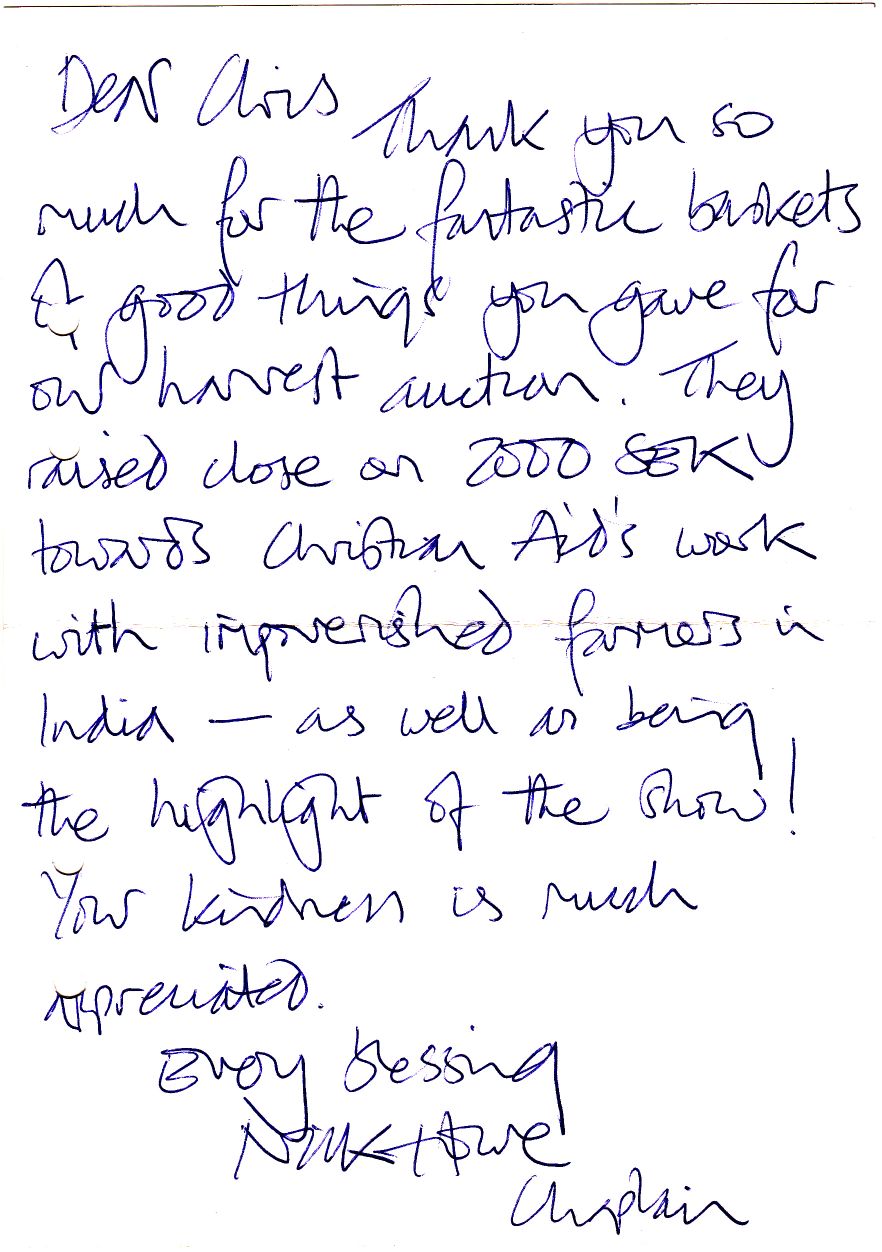 Dear Chris
Thank you so
much for the fantastic baskets
of good things you gave for
our harvest auction. They
raised close on 2000 SEK
towards Christian Aid's work
with impoverished farmers in
India — as well as being
the highlight of the show!
Your kindness is much
appreciated.
Every blessing
Nick Howe
Chaplain